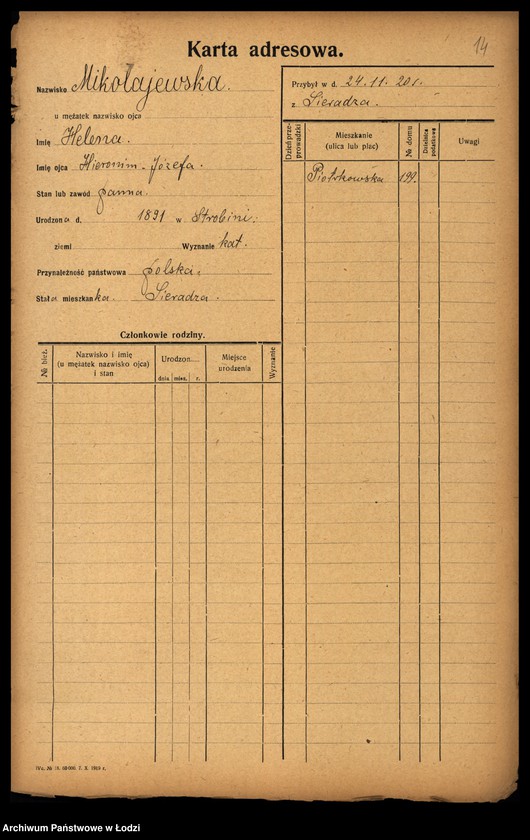 14
Karta adresowa.
Nazwisko Mikołajewska.
u mężatek nazwisko ojca
Imię Helena.
Imię ojca Hieronim-Józefa.
Stan lub zawód panna.
Urodzona d. 1891 w Strobini.
ziemi Wyznanie kat.
Przynależność państwowa polska.
Stała mieszkanka. Sieradza.
Przybył w d. 24.11.20 r.
z Sieradza.
Dzień przeprowadzki
Mieszkanie
(ulica lub plac)
№ domu
Dzielnica podatkowa
Uwagi
Piotrkowska 199.
Członkowie rodziny.
№ bież.
Nazwisko i imię
(u mężatek nazwisko ojca)
i stan
Urodzon
dnia mies. r.
Miejsce
urodzenia
Wyznanie
7. X. 1919 r.
Archiwum Państwowe w Łodzi